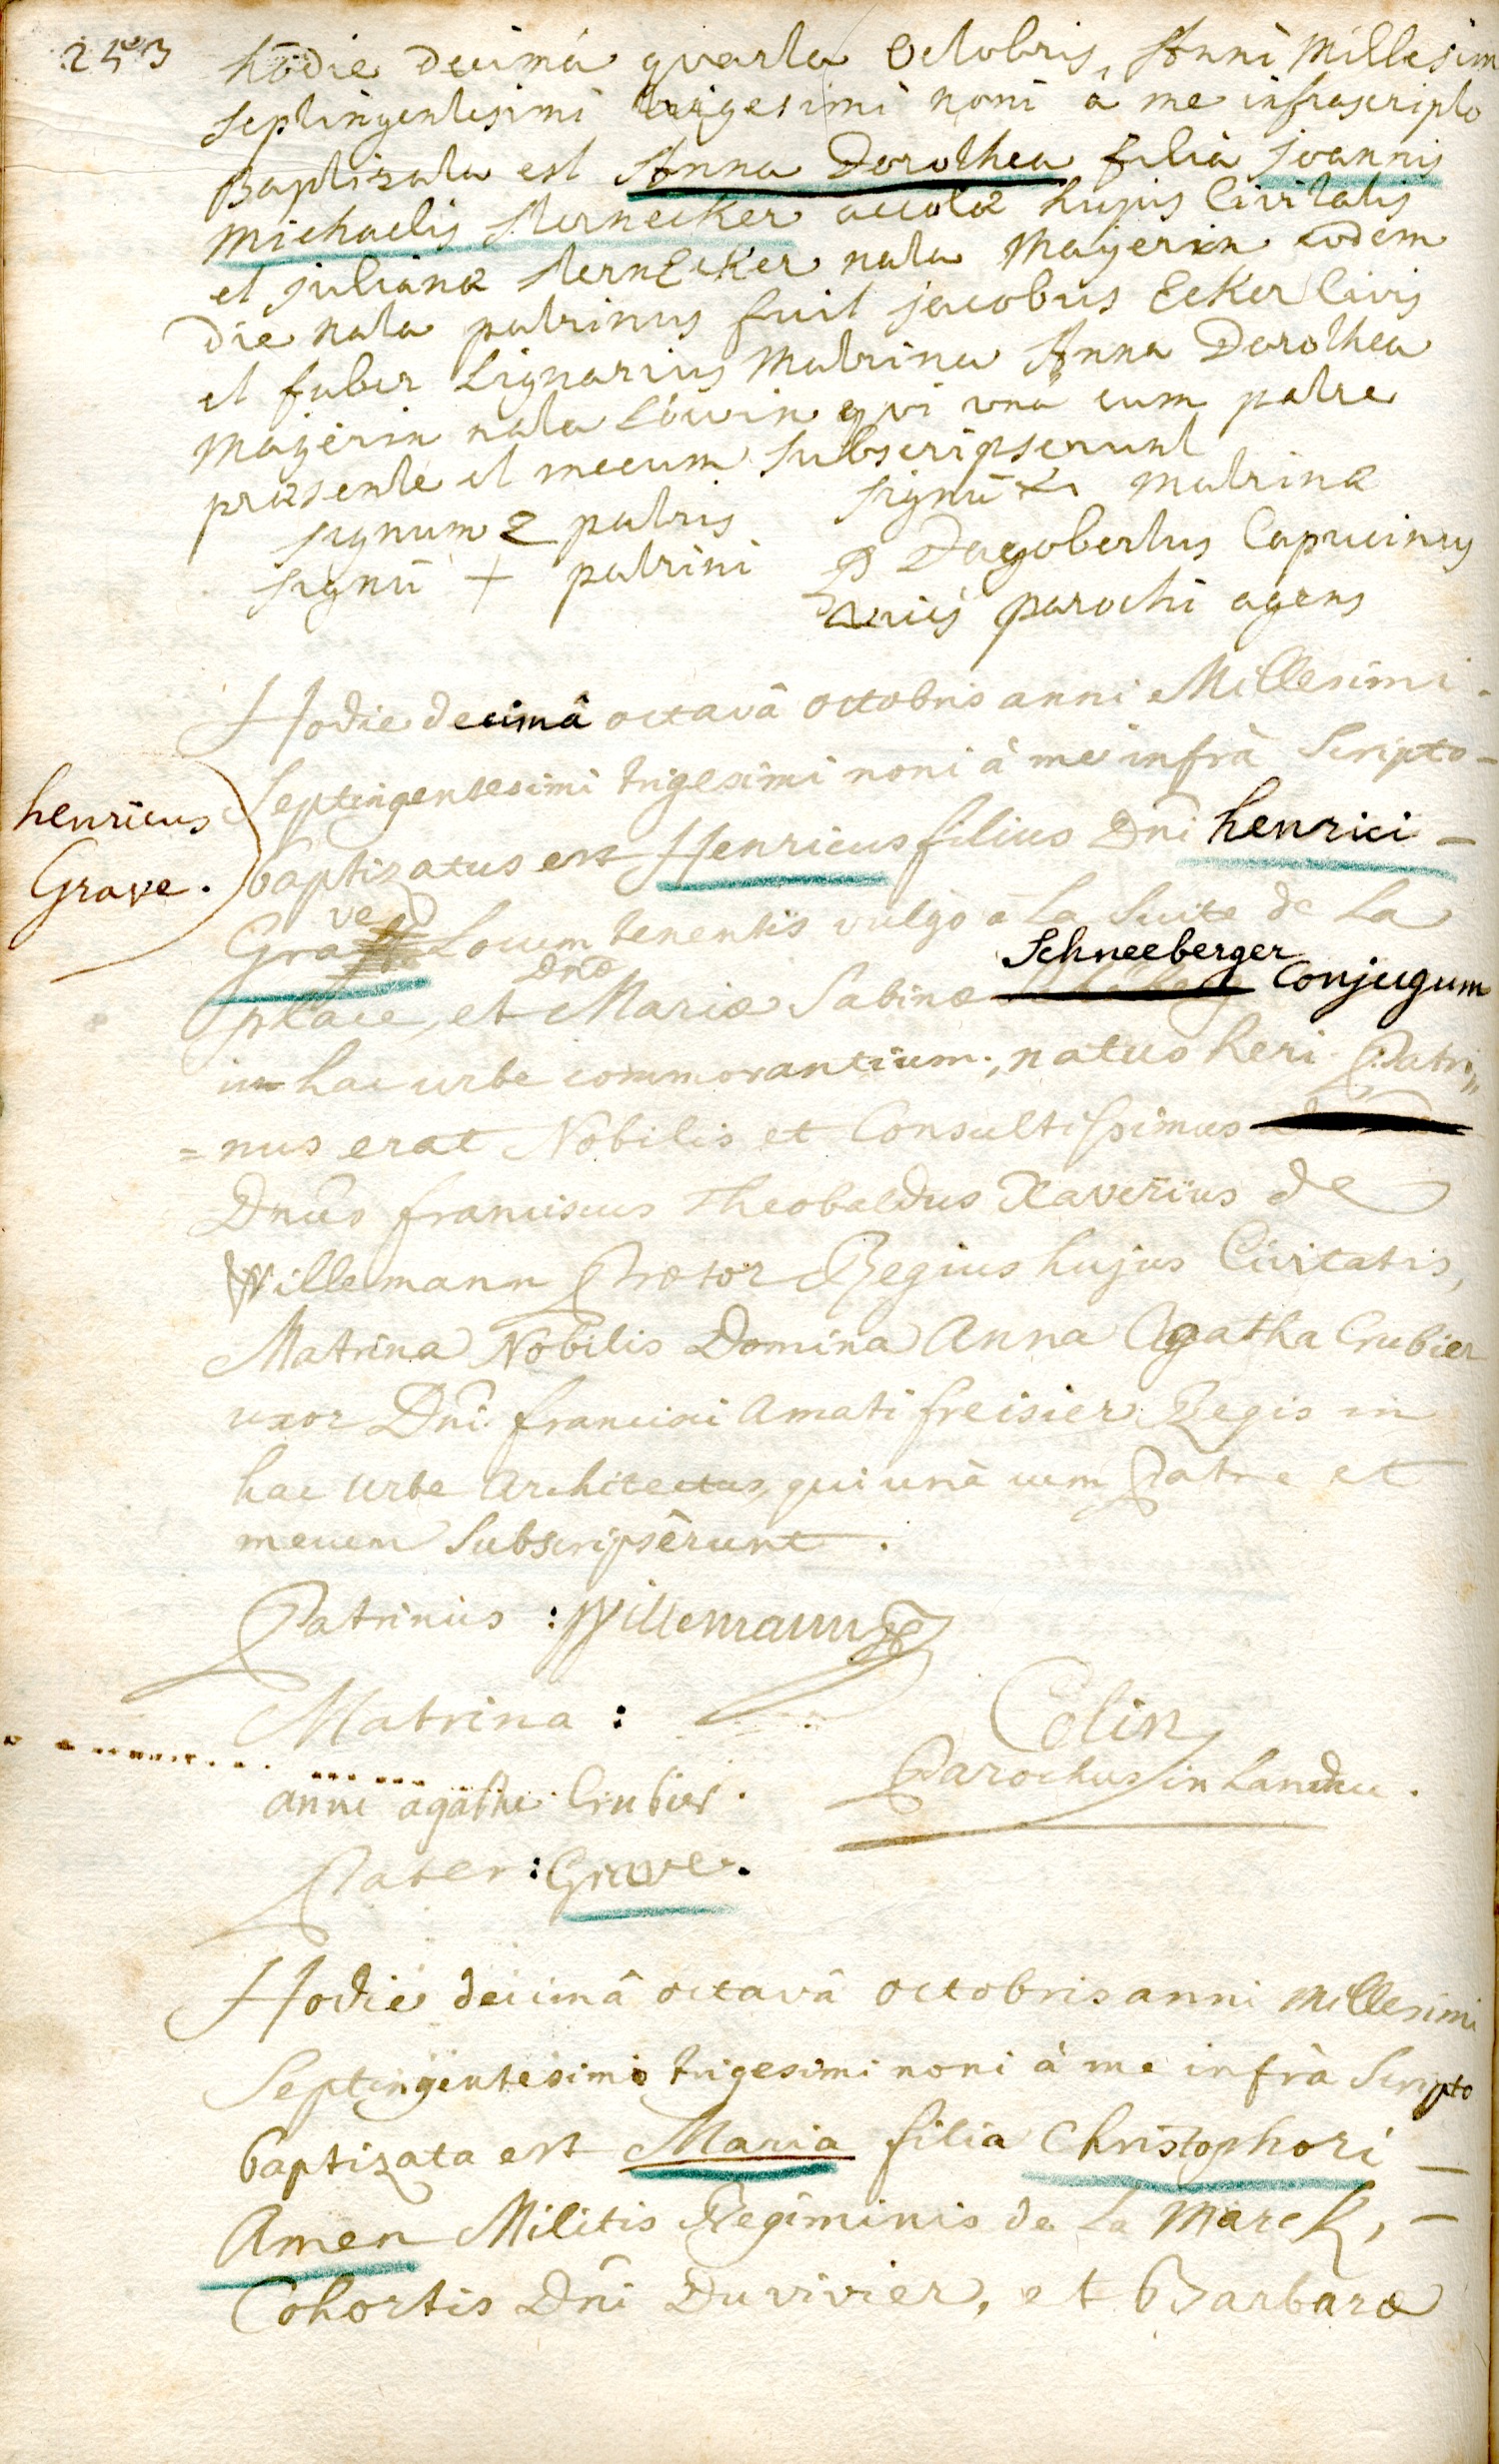 253
hodie decimâ quarta Octobris, Anni Millesimi
septingentesimi trigesimi noni a me infrascripto
Baptizata est Anna Dorothea filia joannis
michaelis sternecker accolæ hujus Civitatis
et julianæ sternEcker nata Mayerin eodem
die nata patrinus fuit jacobus Ecker Civis
et faber Lignarius Matrina Anna Dorothea
Mayerin nata Löwin qui unâ cum patre
præsente et mecum subscripserunt
signum patris signū matrinæ
signū + patrini Dagobertus Capucinus
vices parochi agens
Hodie decimâ octavâ octobris anni Millesimi
Septingentesimi trigesimi noni à me infrà Scripto
henricus
Grave.
baptizatus est Henricus filius Dni henrici
Grave Locum tenentis vulgo a La Suite de La
place, et Dnæ Mariæ Sabinæ Schneeberger Conjugum
in hac urbe commorantium, natus heri. Patri
=nus erat Nobilis et Consultissimus
Dnus franciscus Theobaldus Xaverius de
Willemann Prætor Regius hujus Civitatis,
Matrina Nobilis Domina Anna Agatha Crubier
uxor Dni francisci Amati freisier Regis in
hac urbe Architectus, qui unà cum Patre et
mecum Subscripsêrunt.
Patrinus : Willemann
Matrina :
anne agathe Crubier.
Colin
Parochus in Landau.
Pater : Grave.
Hodie decimâ octavâ octobris anni Millesimi
Septingentesimi trigesimi noni à me infrà Scripto
baptizata est Maria filia Christophori
Amen Militis Regiminis de La Marck,
Cohortis Dni Du vivier, et Barbaræ